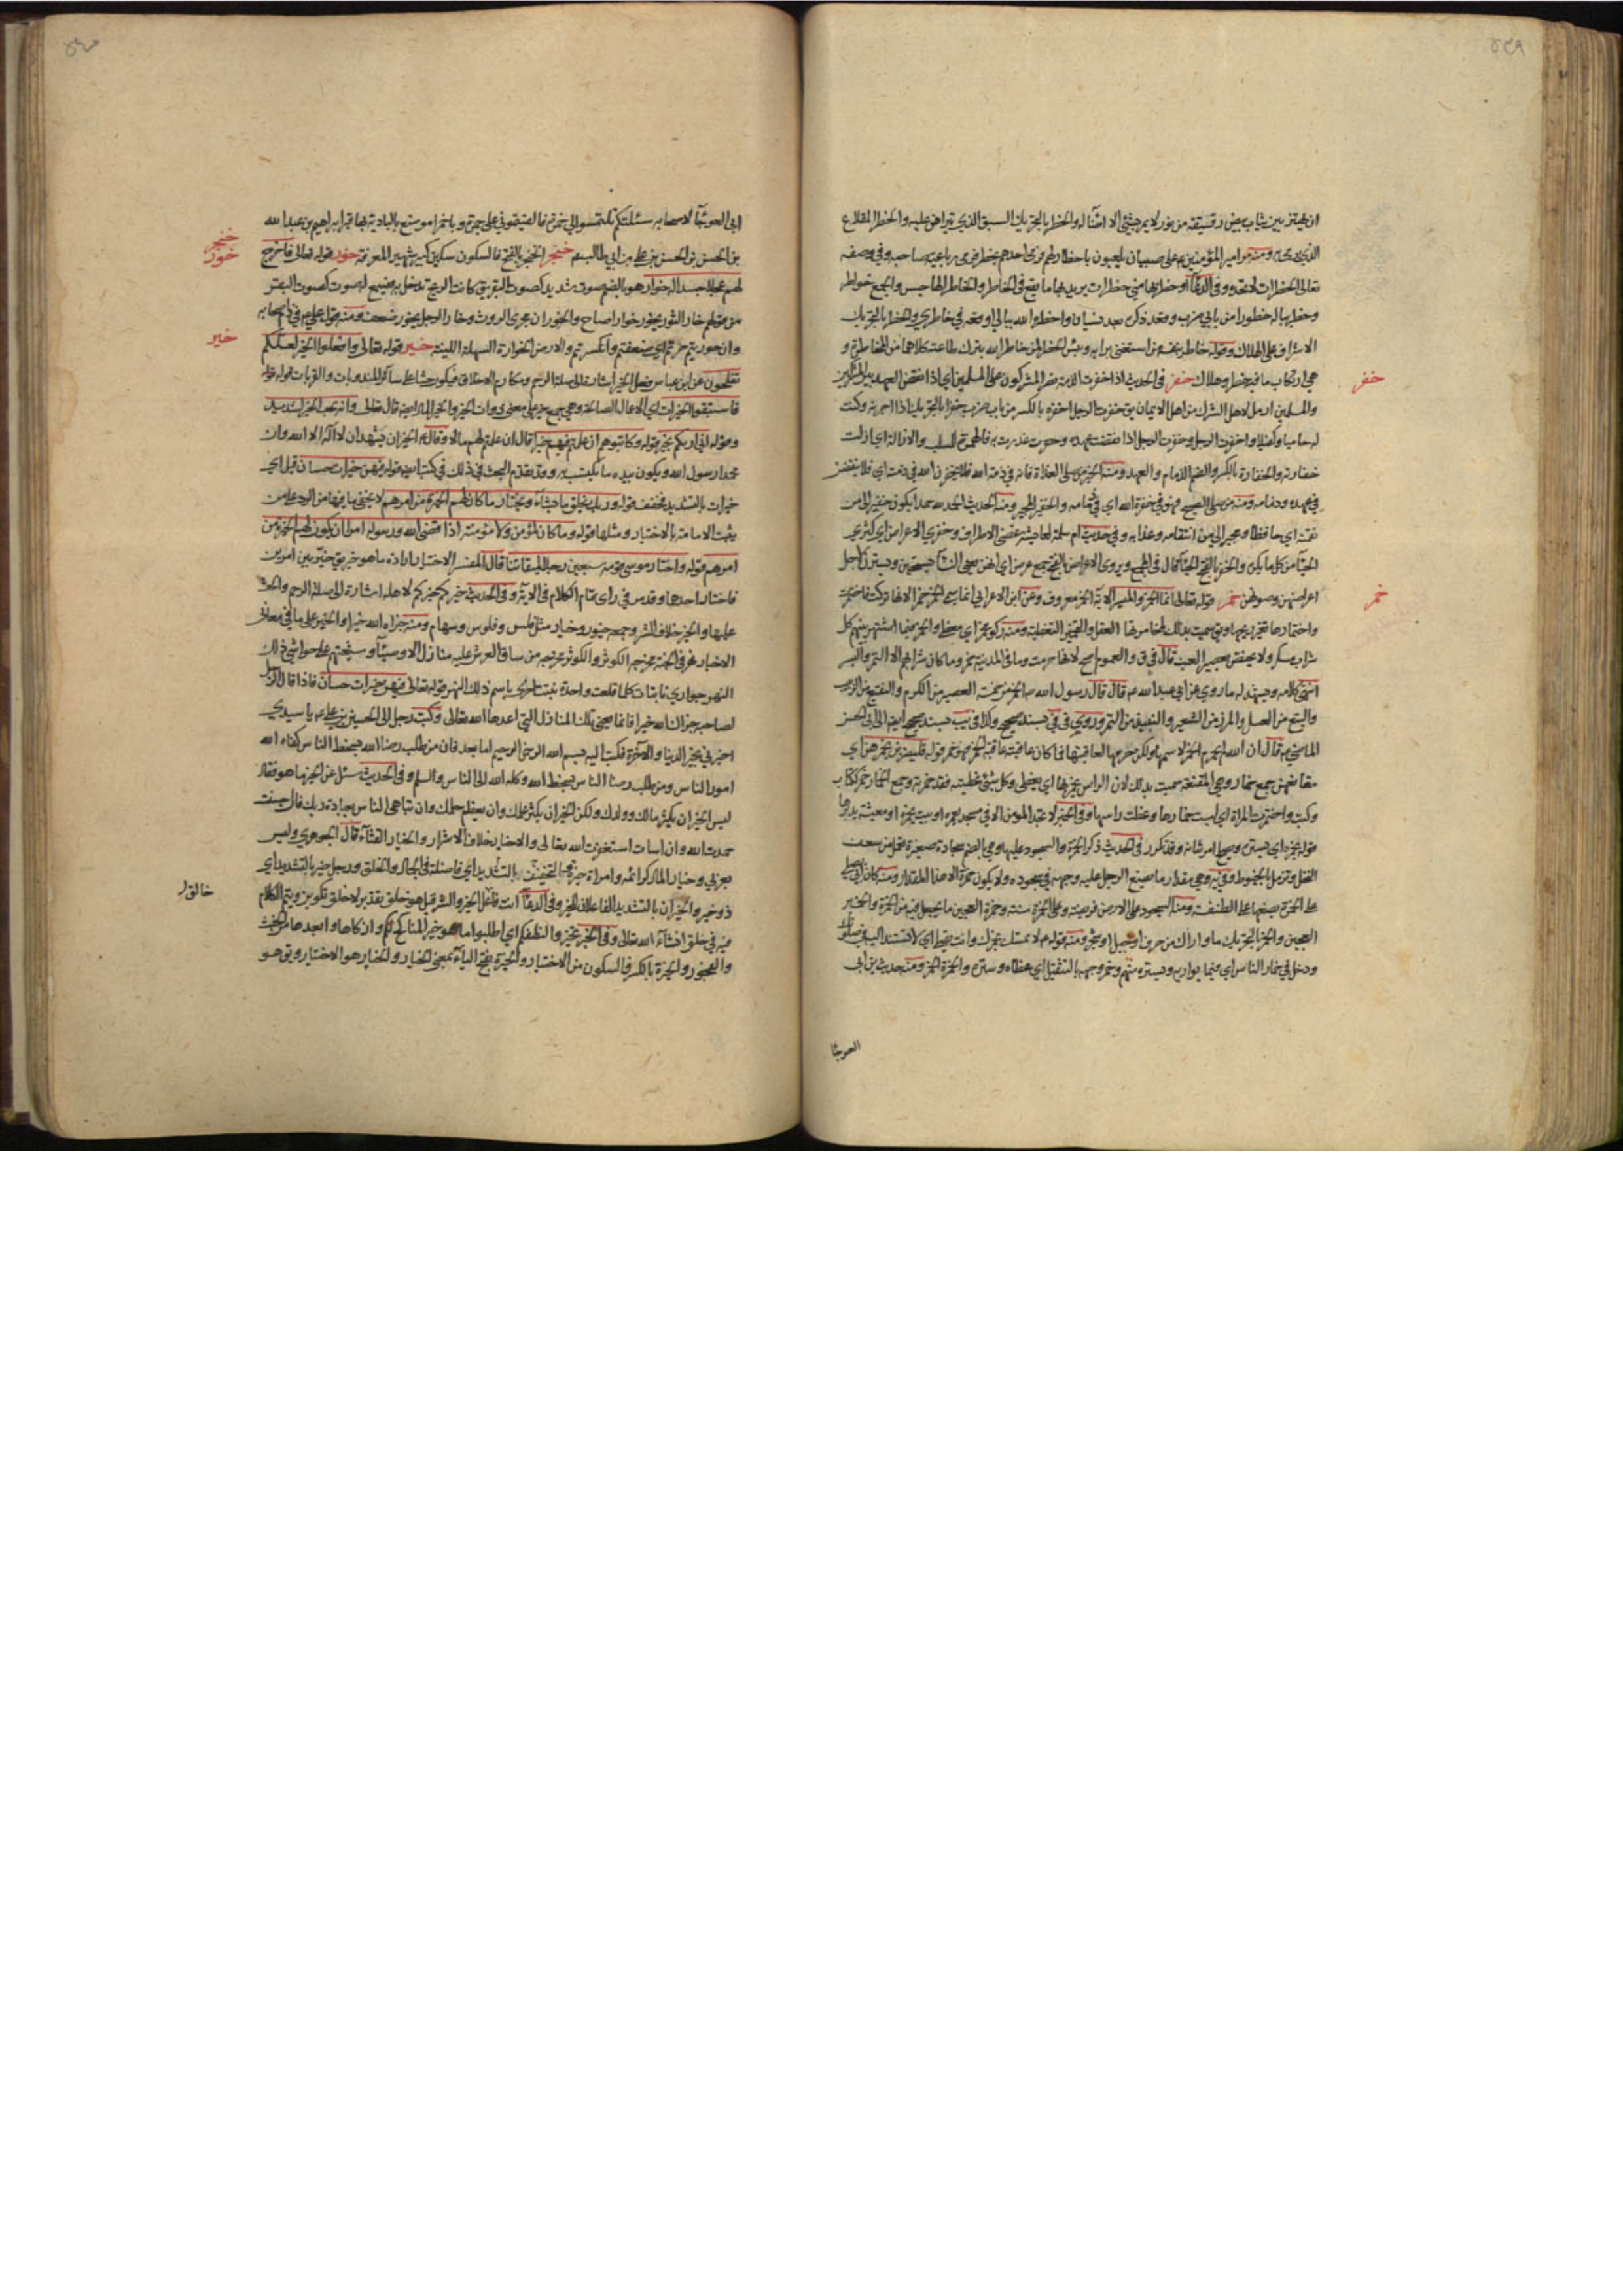 ٤٥٩
ان يهتز بين ثياب بيض رقيقة من نور لا يمر بشئ الا اثنا له والخطر بالتحريك السبق الذي يتراهن عليه والخطر المقلاع
الذي يرمى به ومنه مر امير المؤمنين ع على صبيان يلعبون باخطار لهم فرمى احدهم بخطره فدق رباعية صاحبه وفي وصفه
تعالى الخطرات لا تحده وفي الدعاء او خطر بها مني خطرات يريد بها ما يقع في الخاطر والخاطر الهاجس والجمع خواطر
وخطر بباله خطورا من بابي ضرب وقعد ذكره بعد نسيان واخطره الله ببالي او وقع في خاطري والخطر بالتحريك
الاشراف على الهلاك وقوله خاطر بنفسه من استغنى برايه وبئس الخطر لمن خاطر الله بترك طاعته كلاهما من المخاطرة و
هي ارتكاب ما فيه خطر وهلاك خفر في الحديث اذا خفرت الذمة نصر المشركون على المسلمين اي اذا نقض العهد بين المشركين
خفر
والمسلمين اديل لاهل الشرك من اهل الايمان يق خفرت الرجل اخفره بالكسر من باب ضرب خفرا بالتحريك اذا اجرته وكنت
له حاميا وكفيلا واخفرت الرجل وخفرت الرجل اذا نقضت عهده وغدرت به فالهمزة للسلب والازالة اي ازلت
خفارته والخفارة بالكسر والضم الذمام والعهد ومنه الخبر من صلى الغداة فانه في ذمة الله فلا يخفرن الله في ذمته اي فلا ينقض
في عهده وذمامه ومنه من صلى الصبح فهو في خفرة الله اي في ذمامه والخفير المجير ومنه الحديث الحمد لله حمدا يكون خفيرا لي من
نقمته اي حافظا ومجيرا لي من انتقامه وعذابه وفي حديث ام سلمة لعايشة غض الاطراف وخفر الاعراض اي كثرة
الحياء من كل ما يكره والخفر بالفتح الحياء قال في المجمع ويروى الاعراض بالفتح جمع عرض اي انهن يعني النساء يستحين ويسترن لاجل
اعراضهن وصونهن خمر قوله تعالى انما الخمر والميسر الاية الخمر معروف وعن ابن الاعرابي انما سمي الخمر خمرا لانها تركت فاختمرت
خمر
واختمارها تغير ريحها ويق سميت بذلك لمخامرتها العقل والتخمير التغطية ومنه ركو مخمر اي مغطى والخمر فيما اشتهر بينهم كل
شراب مسكر ولا يختص بعصير العنب قال في ق والعموم اصح لانها حرمت وما في المدينة خمر وما كان شرابهم الا التمر والبسر
انتهى كلامه ويشهد له ما روي عن ابي عبدالله ع قال قال رسول الله ص الخمر من خمسة العصير من الكرم والنقيع من الزبيب
والبتع من العسل والمزر من الشعير والنبيذ من التمر وروي في في بسند صحيح وكذا في يب بسند صحيح ايضا الى ابي الحسن
الماضي ع قال ان الله لم يحرم الخمر لاسمها ولكن حرمها لعاقبتها فما كان عاقبته عاقبة الخمر فهو خمر قوله فليضربن بخمرهن اي
مقانعهن جمع خمار وهي المقنعة سميت بذلك لان الراس يخمر بها اي يغطى وكل شئ غطيته فقد خمرته وجمع الخمار خمر ككتاب
وكتب واختمرت المراة اي لبست خمارها وغطت راسها وفي الخبر لا تجد المؤمن الا في مسجد يعمره او بيت يخمره او معيشة يدبرها
قوله يخمره اي يستره ويصلح من شانه وقد تكرر في الحديث ذكر الخمرة والسجود عليها وهي بالضم سجادة صغيرة تعمل من سعف
النخل وتزمل بالخيوط وفي يه وهي مقدار ما يضع الرجل عليه وجهه في سجوده ولا يكون خمرة الا هذا المقدار ومنه كان ابي يصلي
على الخمرة يضعها على الطنفسة ومنه السجود على الارض فريضة وعلى الخمرة سنة وخمرة العجين ما يجعل فيه من الخمرة والخمير
العجين والخمر بالتحريك ما واراك من جرف او حبل او شجر ومنه قولهم لا تمسك بخمرك وانت تخط اي لا تستند اليه في صلوتك
ودخل في خمار الناس اي فيما يواريه ويستره منهم وخمر وجهه بالتثقيل اي غطاه وستره والخمرة الخمر ومنه حديث ابن ابي
العوجا
٤٦٠
ابي العوجآ لاصحابه سئلتكم تلتمسوا لي خمرة فالقيتموني على جمرة وباخمرا موضع بالبادية بها قبر ابراهيم بن عبدالله
بن الحسن بن الحسن بن علي بن ابي طالب ع خنجر الخنجر بالفتح فالسكون سكين كبير شهير المعرفة خور قوله تعالى فاخرج
خنجر
خور
لهم عجلا جسدا له خوار هو بالضم صوت شديد كصوت البقر يق كانت الريح تدخل به فيسمع له صوت كصوت البقر
من قولهم خار الثور يخور خوارا صاح والخوران مجرى الروث وخار الرجل يخور ضعف ومنه قول علي ع في ذم اصحابه
وان خورتم خرتم اي ضعفتم وانكسرتم والارض الخوارة السهلة اللينة خير قوله تعالى وافعلوا الخير لعلكم
خير
تفلحون عن ابن عباس فعل الخير اشارة الى صلة الرحم ومكارم الاخلاق فيكون حثا على سائر المندوبات والقربات قوله
فاستبقوا الخيرات اي الاعمال الصالحة وهي جمع خير على معنى ذوات الخير والخير المال ايضا قال تعالى وانه لحب الخير لشديد
وقوله اني اريكم بخير قوله وكاتبوهم ان علمتم فيهم خيرا قال ان علمتم لهم مالا وقال ع الخير ان يشهد ان لا اله الا الله وان
محمدا رسول الله ويكون بيده ما يكتسب به وقد تقدم البحث في ذلك في كتب ايضا قوله فيهن خيرات حسان قيل اي
خيرات بالتشديد فخفف قوله وربك يخلق ما يشاء ويختار ما كان لهم الخيرة من امرهم لا يخفى ما فيها من الرد على من
يثبت الامامة بالاختيار ومثلها قوله وما كان لمؤمن ولا مؤمنة اذا قضى الله ورسوله امرا ان يكون لهم الخيرة من
امرهم قوله واختار موسى قومه سبعين رجلا لميقاتنا قال المفسر الاختيار ارادة ما هو خير يق خير بين امرين
فاختار احدهما وقد مر في راى تمام الكلام في الاية وفي الحديث خيركم خيركم لاهله اشارة الى صلة الرحم والحث
عليها والخير خلاف الشر وجمعه خيور وخيار مثل فلس وفلوس وسهام ومنه جزاه الله خيرا والخير على ما في معاني
الاخبار نهر في الجنة مخرجه الكوثر والكوثر مخرجه من ساق العرش عليه منازل الاوصيآء وشيعتهم على حواشي ذلك
النهر جواري نابتات كلما قلعت واحدة نبتت اخرى باسم ذلك النهر قوله تعالى فيهن خيرات حسان فاذا قال الرجل
لصاحبه جزاك الله خيرا فانما يعني تلك المنازل التي اعدها الله تعالى وكتب رجل الى الحسين بن علي ع يا سيدي
اخبرني بخير الدنيا والآخرة فكتب اليه بسم الله الرحمن الرحيم اما بعد فان من طلب رضا الله بسخط الناس كفاه الله
امور الناس ومن طلب رضا الناس بسخط الله وكله الله الى الناس والسلم وفي الحديث سئل عن الخير ما هو فقال
ليس الخير ان يكثر مالك وولدك ولكن الخير ان يكثر علمك وان يعظم حلمك وان تباهي الناس بعبادة ربك فان احسنت
حمدت الله وان اسات استغفرت الله تعالى والاخيار خلاف الاشرار والخيار القثآء قال الجوهري وليس
بعربي وخيار المال كرائمه وامراة خيرة بالتخفيف بالتشديد اي فاضلة في الجمال والخلق ورجل خير بالتشديد اي
ذو خير والخيران بالتشديد الفاعلان للخير وفي الدعآء انت فاعل الخير والشر قيل هو خلق تقدير لا خلق تكوين ويتم الكلام
خالق
فيه في خلق انشآء الله تعالى وفي الخبر تخيروا لنطفكم اي اطلبوا ما هو خير المناكح لكم وان كاها وابعدها من الخبث
والفجور والخيرة بالكسر فالسكون من الاختيار والخيرة بفتح اليآء بمعنى الخيار والخيار هو الاختيار ويق هو